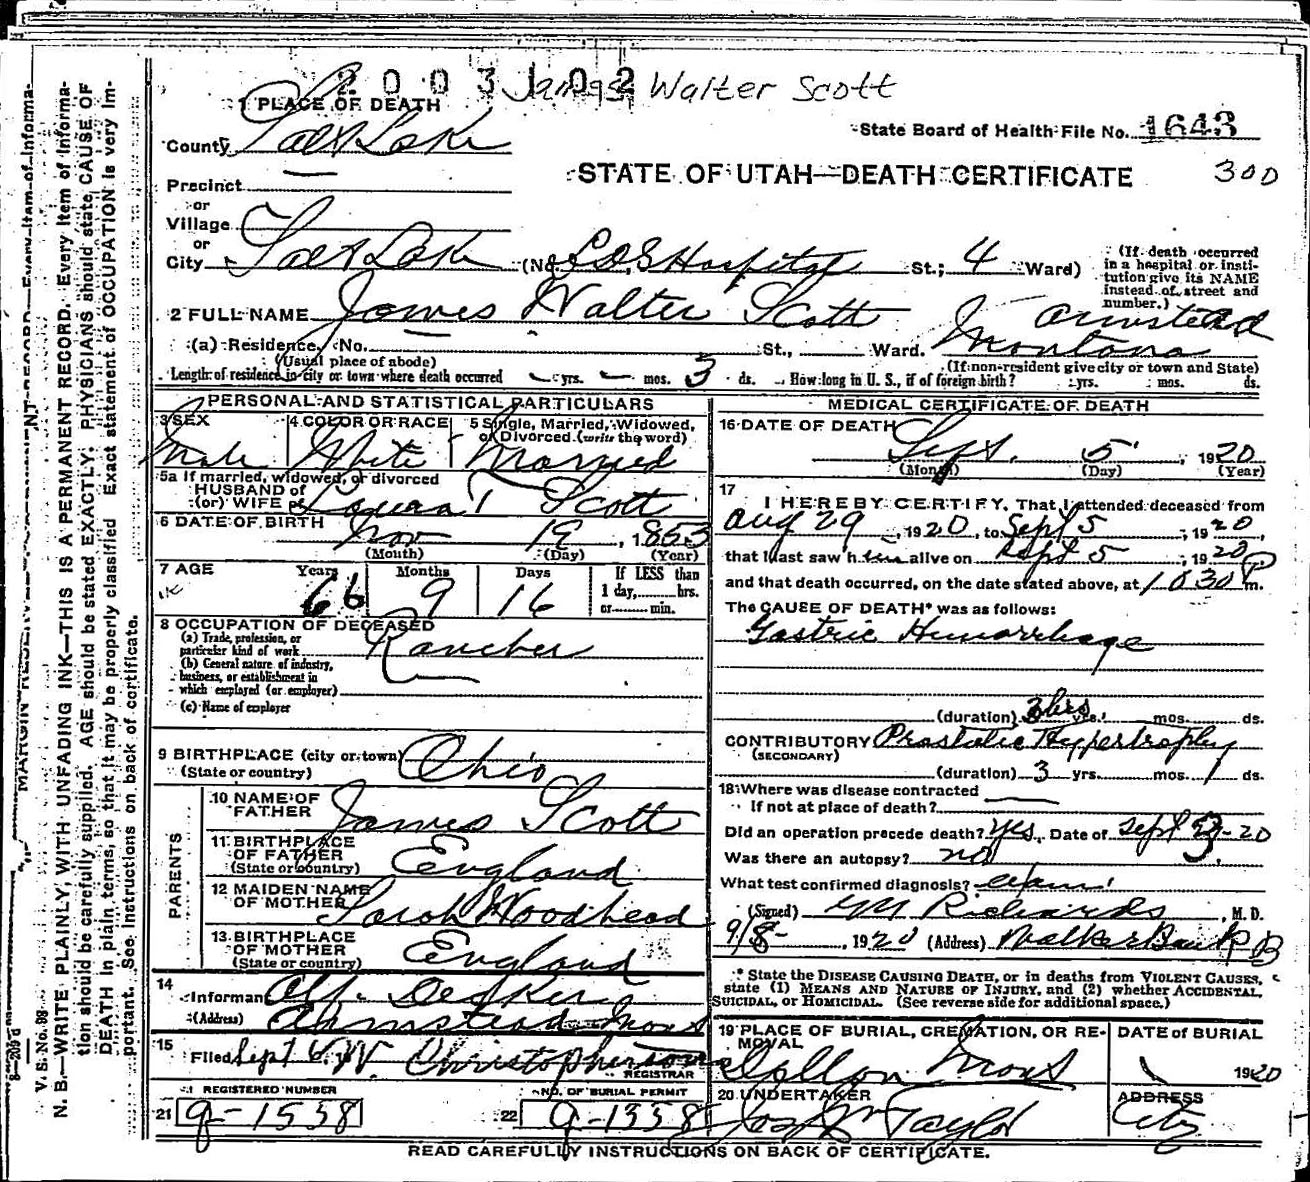 2003102 James Walter Scott
1 PLACE OF DEATH
State Board of Health File No. 1643
County Salt Lake
STATE OF UTAH—DEATH CERTIFICATE 300
Precinct
or
Village
or
City Salt Lake (No. L.D.S Hospital St.; 4 Ward)
(If death occurred in a hospital or institution give its NAME instead of street and number.)
2 FULL NAME James Walter Scott
Armstead
(a) Residence. No. St., Ward. Montana
(Usual place of abode) (If non-resident give city or town and State)
Length of residence in city or town where death occurred — yrs. — mos. 3 ds. How long in U. S., if of foreign birth? yrs. mos. ds.
PERSONAL AND STATISTICAL PARTICULARS
3 SEX 4 COLOR OR RACE 5 Single, Married, Widowed, or Divorced (write the word)
Male White Married
5a If married, widowed, or divorced
HUSBAND of
(or) WIFE of Scott
6 DATE OF BIRTH Nov 19, 1853
(Month) (Day) (Year)
7 AGE Years Months Days If LESS than
66 9 16 1 day, hrs.
or min.
8 OCCUPATION OF DECEASED
(a) Trade, profession, or
particular kind of work Rancher
(b) General nature of industry,
business, or establishment in
which employed (or employer)
(c) Name of employer
9 BIRTHPLACE (city or town)
(State or country) Ohio
PARENTS
10 NAME OF
FATHER James Scott
11 BIRTHPLACE
OF FATHER England
(State or country)
12 MAIDEN NAME
OF MOTHER Sarah Woodhead
13 BIRTHPLACE
OF MOTHER England
(State or country)
14
Informant
(Address) Armstead Mont
15
Filed Sept 6 W. Christopherson
REGISTRAR
REGISTERED NUMBER NO. OF BURIAL PERMIT
21 9-1538 22 9-1338
MEDICAL CERTIFICATE OF DEATH
16 DATE OF DEATH
Sept. 5, 1920
(Month) (Day) (Year)
17
I HEREBY CERTIFY, That I attended deceased from
Aug 29 1920, to Sept 5, 1920,
that I last saw him alive on Sept 5, 1920
and that death occurred, on the date stated above, at 1030 P m.
The CAUSE OF DEATH* was as follows:
Gastric Hemorrhage
(duration) 3 hrs yrs. mos. ds.
CONTRIBUTORY Prostatic Hypertrophy
(SECONDARY)
(duration) 3 yrs. mos. ds.
18 Where was disease contracted
If not at place of death?
Did an operation precede death? Yes Date of Sept 3-20
Was there an autopsy? no
What test confirmed diagnosis?
(Signed) GM Richards, M. D.
9/8-, 1920 (Address) Walker Bank B
* State the DISEASE CAUSING DEATH, or in deaths from VIOLENT CAUSES,
state (1) MEANS AND NATURE OF INJURY, and (2) whether ACCIDENTAL,
SUICIDAL, or HOMICIDAL. (See reverse side for additional space.)
19 PLACE OF BURIAL, CREMATION, OR REMOVAL DATE OF BURIAL
Dillon Mont 1920
20 UNDERTAKER ADDRESS
Jos Wm Taylor City
READ CAREFULLY INSTRUCTIONS ON BACK OF CERTIFICATE.
V. S. No. 98
N. B.—WRITE PLAINLY, WITH UNFADING INK—THIS IS A PERMANENT RECORD. Every item of information should be carefully supplied. AGE should be stated EXACTLY. PHYSICIANS should state CAUSE OF DEATH in plain terms, so that it may be properly classified. Exact statement of OCCUPATION is very important. See instructions on back of certificate.